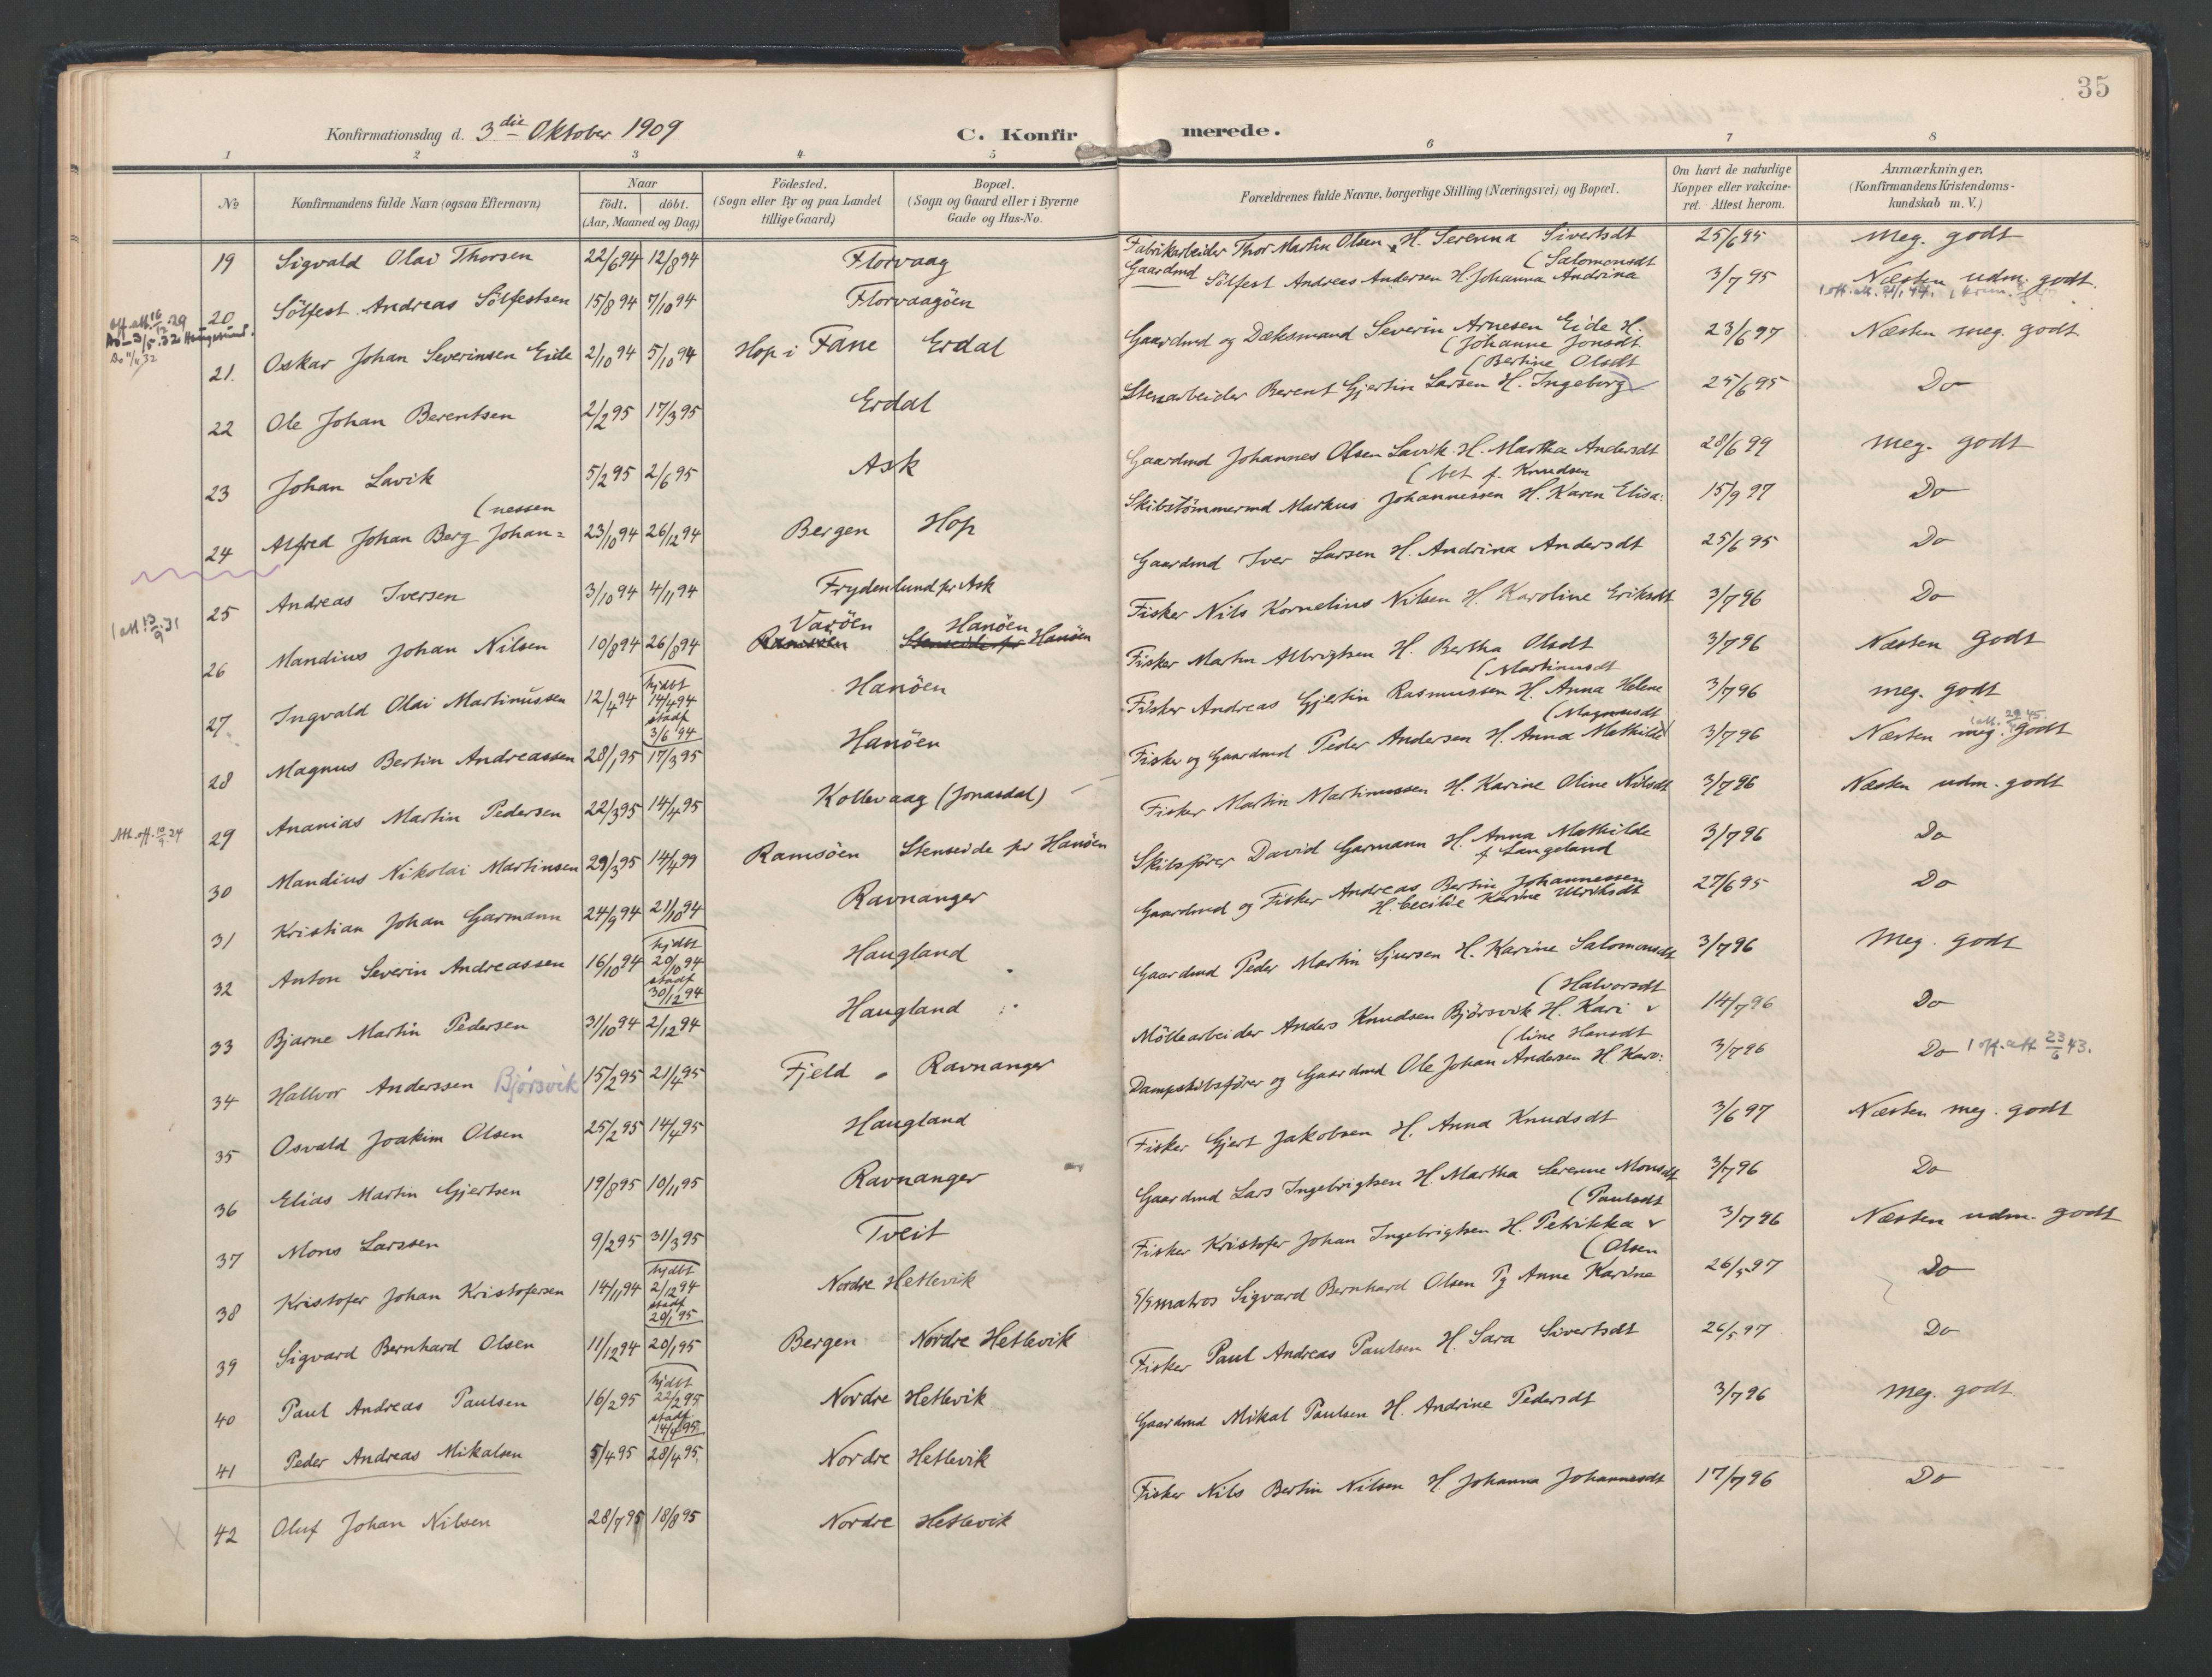 35
Konfirmationsdag d. 3die Oktober 1909
C. Konfirmerede.
1 2 3 4 5 6 7 8
No
Konfirmandens fulde Navn (ogsaa Efternavn)
Naar
födt. döbt.
(Aar, Maaned og Dag)
Födested.
(Sogn eller By og paa Landet
tillige Gaard)
Bopæl.
(Sogn og Gaard eller i Byerne
Gade og Hus-No.
Forældrenes fulde Navne, borgerlige Stilling (Næringsvei) og Bopæl.
Om havt de naturlige
Kopper eller vakcine-
ret. Attest herom.
Anmærkninger.
(Konfirmandens Kristendoms-
kundskab m. V.)
19 Sigvald Olai Thorsen 22/6 94 12/8 94 Florvaag Fabrikarbeider Thor Martin Olsen H. Serenna Sivertsdt 25/6 95 Meg. godt
20 Sölfest Andreas Sölfestsen 15/8 94 7/10 94 Florvaagöen Gaardmd Sölfest Andreas Andersen H. Johanna Andrina (Salomonsdt 3/7 95 Næsten udm. godt.
21. Oskar Johan Severinsen Eide 2/10 94 5/10 94 Hop i Fane Erdal Gaardmd og Dæksmand Severin Arnesen Eide H. (Johanne Jonsdt 23/6 97 Næsten meg. godt
22 Ole Johan Berentsen 2/2 95 17/3 95 Erdal Stenarbeider Berent Gjertin Larsen H. Ingeborg (Bertine Olsdt 25/6 95 Do
23 Johan Lavik 5/2 95 2/6 95 Ask Gaardmd Johannes Olsen Lavik H. Martha Andersdt 28/6 99 Meg. godt
24 Alfred Johan Berg Johan= (nessen 23/10 94 26/12 94 Bergen Hop Skibstömmermd Markus Johannessen H. Karen Elisa: (bet f. Knudsen 15/9 97 Do
25 Andreas Iversen 3/10 94 4/11 94 Frydenlund pr Ask Gaardmd Iver Larsen H. Andrina Andersdt 25/6 95 Do
1 att 13/9.31
26 Mandius Johan Nilsen 10/8 94 26/8 94 Varöen Hanöen Ramsöen Stenseide pr Hanöen Fisker Nils Kornelius Nilsen H. Karoline Eriksdt 3/7 96 Do
27 Ingvald Olai Martinussen 12/4 94 hjdbt 14/4 94 stadf 3/6 94 Hanöen Fisker Martin Albrigtsen H. Bertha Olsdt 3/7 96 Næsten Godt
28 Magnus Bertin Andreassen 28/1 95 17/3 95 Hanöen Fisker Andreas Gjertin Rasmussen H. Anna Helene (Martinusdt 3/7 96 meg. godt
29 Ananias Martin Pedersen 22/3 95 14/4 95 Kollevaag (Jonasdal) Fisker og Gaardmd Peder Andersen H. Anna Mathilde (Magnusdt 3/7 96 Næsten meg. godt
30 Mandius Nikolai Martinsen 29/3 95 14/4 99 Ramsöen Stenseide pr Hanöen Fisker Martin Martinussen H. Karine Oline Nilsdt 3/7 96 Næsten udm. godt
31 Kristian Johan Garmann 24/9 94 21/10 94 Ravnanger Skibsfører David Garmann H. Anna Mathilde f Langeland 3/7 96 Do
32 Anton Severin Andreassen 16/10 94 hjdbt 20/10 94 stadf 30/12 94 Haugland Gaardmd og Fisker Andreas Bertin Johannessen H. Cecilie Karine Ulriksdt 27/6 95 Do
33 Bjarne Martin Pedersen 31/10 94 2/12 94 Haugland Gaardmd Peder Martin Sjursen H. Karine Salomonsdt 3/7 96 Meg. godt
34 Hallvor Anderssen Björsvik 15/2 95 21/4 95 Fjeld Ravnanger Möllearbeider Anders Knudsen Björsvik H. Kari (Halvorsdt 14/7 96 Do
35 Osvald Joakim Olsen 25/2 95 14/4 95 Haugland Dampskibsfører og Gaardmd Ole Johan Andersen H Karo: (line Hansdt 3/7 96 Do 1 off. att 23/6 43.
36 Elias Martin Gjertsen 19/8 95 10/11 95 Ravnanger Fisker Gjert Jakobsen H. Anna Knudsdt 3/6 97 Næsten meg. godt
37 Mons Larssen 9/2 95 31/3 95 Tveit Gaardmd Lars Ingebrigtsen H. Martha Serenne Monsdt 3/7 96 Do
38 Kristofer Johan Kristofersen 14/11 94 hjdbt 2/12 94 stadf 20/1 95 Nordre Hetlevik Fisker Kristofer Johan Ingebrigtsen H. Petrikka (Paulsdt 3/7 96 Næsten udm. godt
39 Sigvard Bernhard Olsen 11/12 94 20/1 95 Bergen Nordre Hetlevik S/Smatros Sigvard Bernhard Olsen Pg Anne Karine (Olsen 26/5 97 Do
40 Paul Andreas Paulsen 16/2 95 hjdbt 22/2 95 stadf 14/4 95 Nordre Hetlevik Fisker Paul Andreas Paulsen H. Sara Sivertsdt 26/5 97 Do
41 Peder Andreas Mikalsen 5/4 95 28/4 95 Nordre Hetlevik Gaardmd Mikal Paulsen H. Andrine Pedersdt 3/7 96 Meg. godt
42 Oluf Johan Nilsen 28/7 95 18/8 95 Nordre Hetlevik Fisker Nils Bertin Nilsen H. Johanna Johannesdt 17/7 96 Do